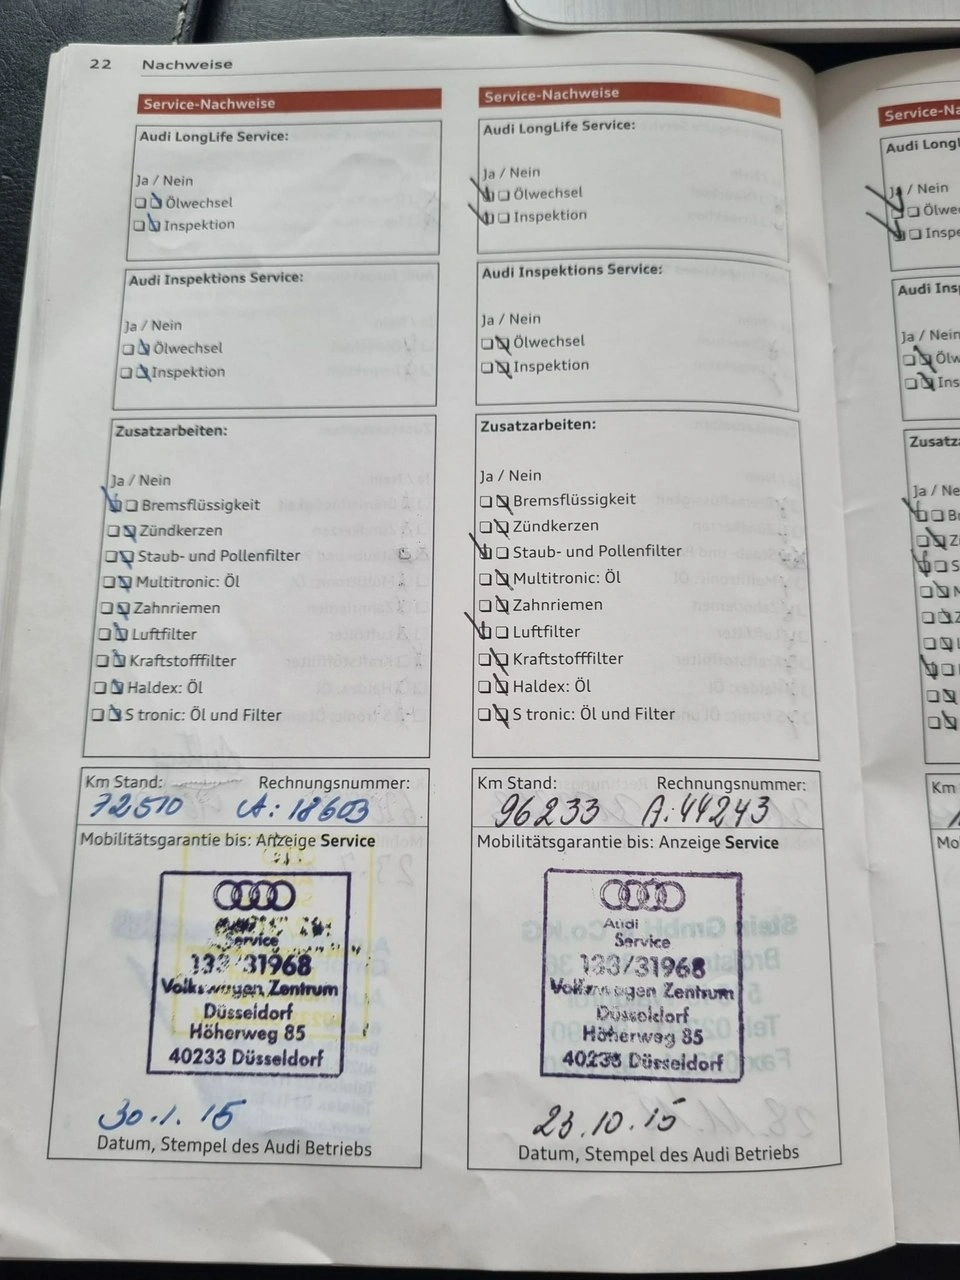 22 Nachweise
Service-Nachweise
Audi LongLife Service:
Ja / Nein
Ölwechsel
Inspektion
Audi Inspektions Service:
Ja / Nein
Ölwechsel
Inspektion
Zusatzarbeiten:
Ja / Nein
Bremsflüssigkeit
Zündkerzen
Staub- und Pollenfilter
Multitronic: Öl
Zahnriemen
Luftfilter
Kraftstofffilter
Haldex: Öl
S tronic: Öl und Filter
Km Stand: Rechnungsnummer:
72510 A: 18603
Mobilitätsgarantie bis: Anzeige Service
Service
133/31968
Volkswagen Zentrum
Düsseldorf
Höherweg 85
40233 Düsseldorf
30.1.15
Datum, Stempel des Audi Betriebs
Service-Nachweise
Audi LongLife Service:
Ja / Nein
Ölwechsel
Inspektion
Audi Inspektions Service:
Ja / Nein
Ölwechsel
Inspektion
Zusatzarbeiten:
Ja / Nein
Bremsflüssigkeit
Zündkerzen
Staub- und Pollenfilter
Multitronic: Öl
Zahnriemen
Luftfilter
Kraftstofffilter
Haldex: Öl
S tronic: Öl und Filter
Km Stand: Rechnungsnummer:
96233 A: 44243
Mobilitätsgarantie bis: Anzeige Service
Audi
Service
133/31968
Volkswagen Zentrum
Düsseldorf
Höherweg 85
40233 Düsseldorf
23.10.15
Datum, Stempel des Audi Betriebs
Service-Na
Audi Longl
Ja / Nein
Ölwe
Inspe
Audi Ins
Ja / Nein
Ölw
Ins
Zusatz
Ja / Ne
B
Z
S
M
Z
L
Km
Mo